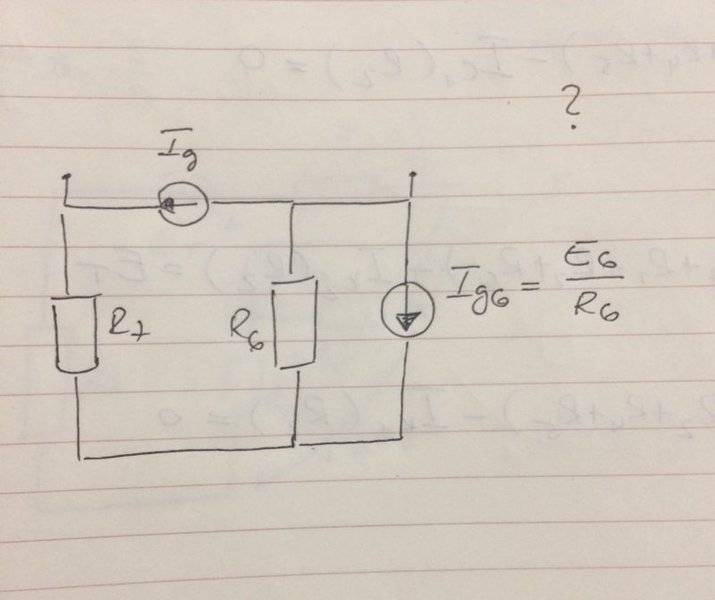 ?
Ig
R7
R6
Ig6 = E6/R6